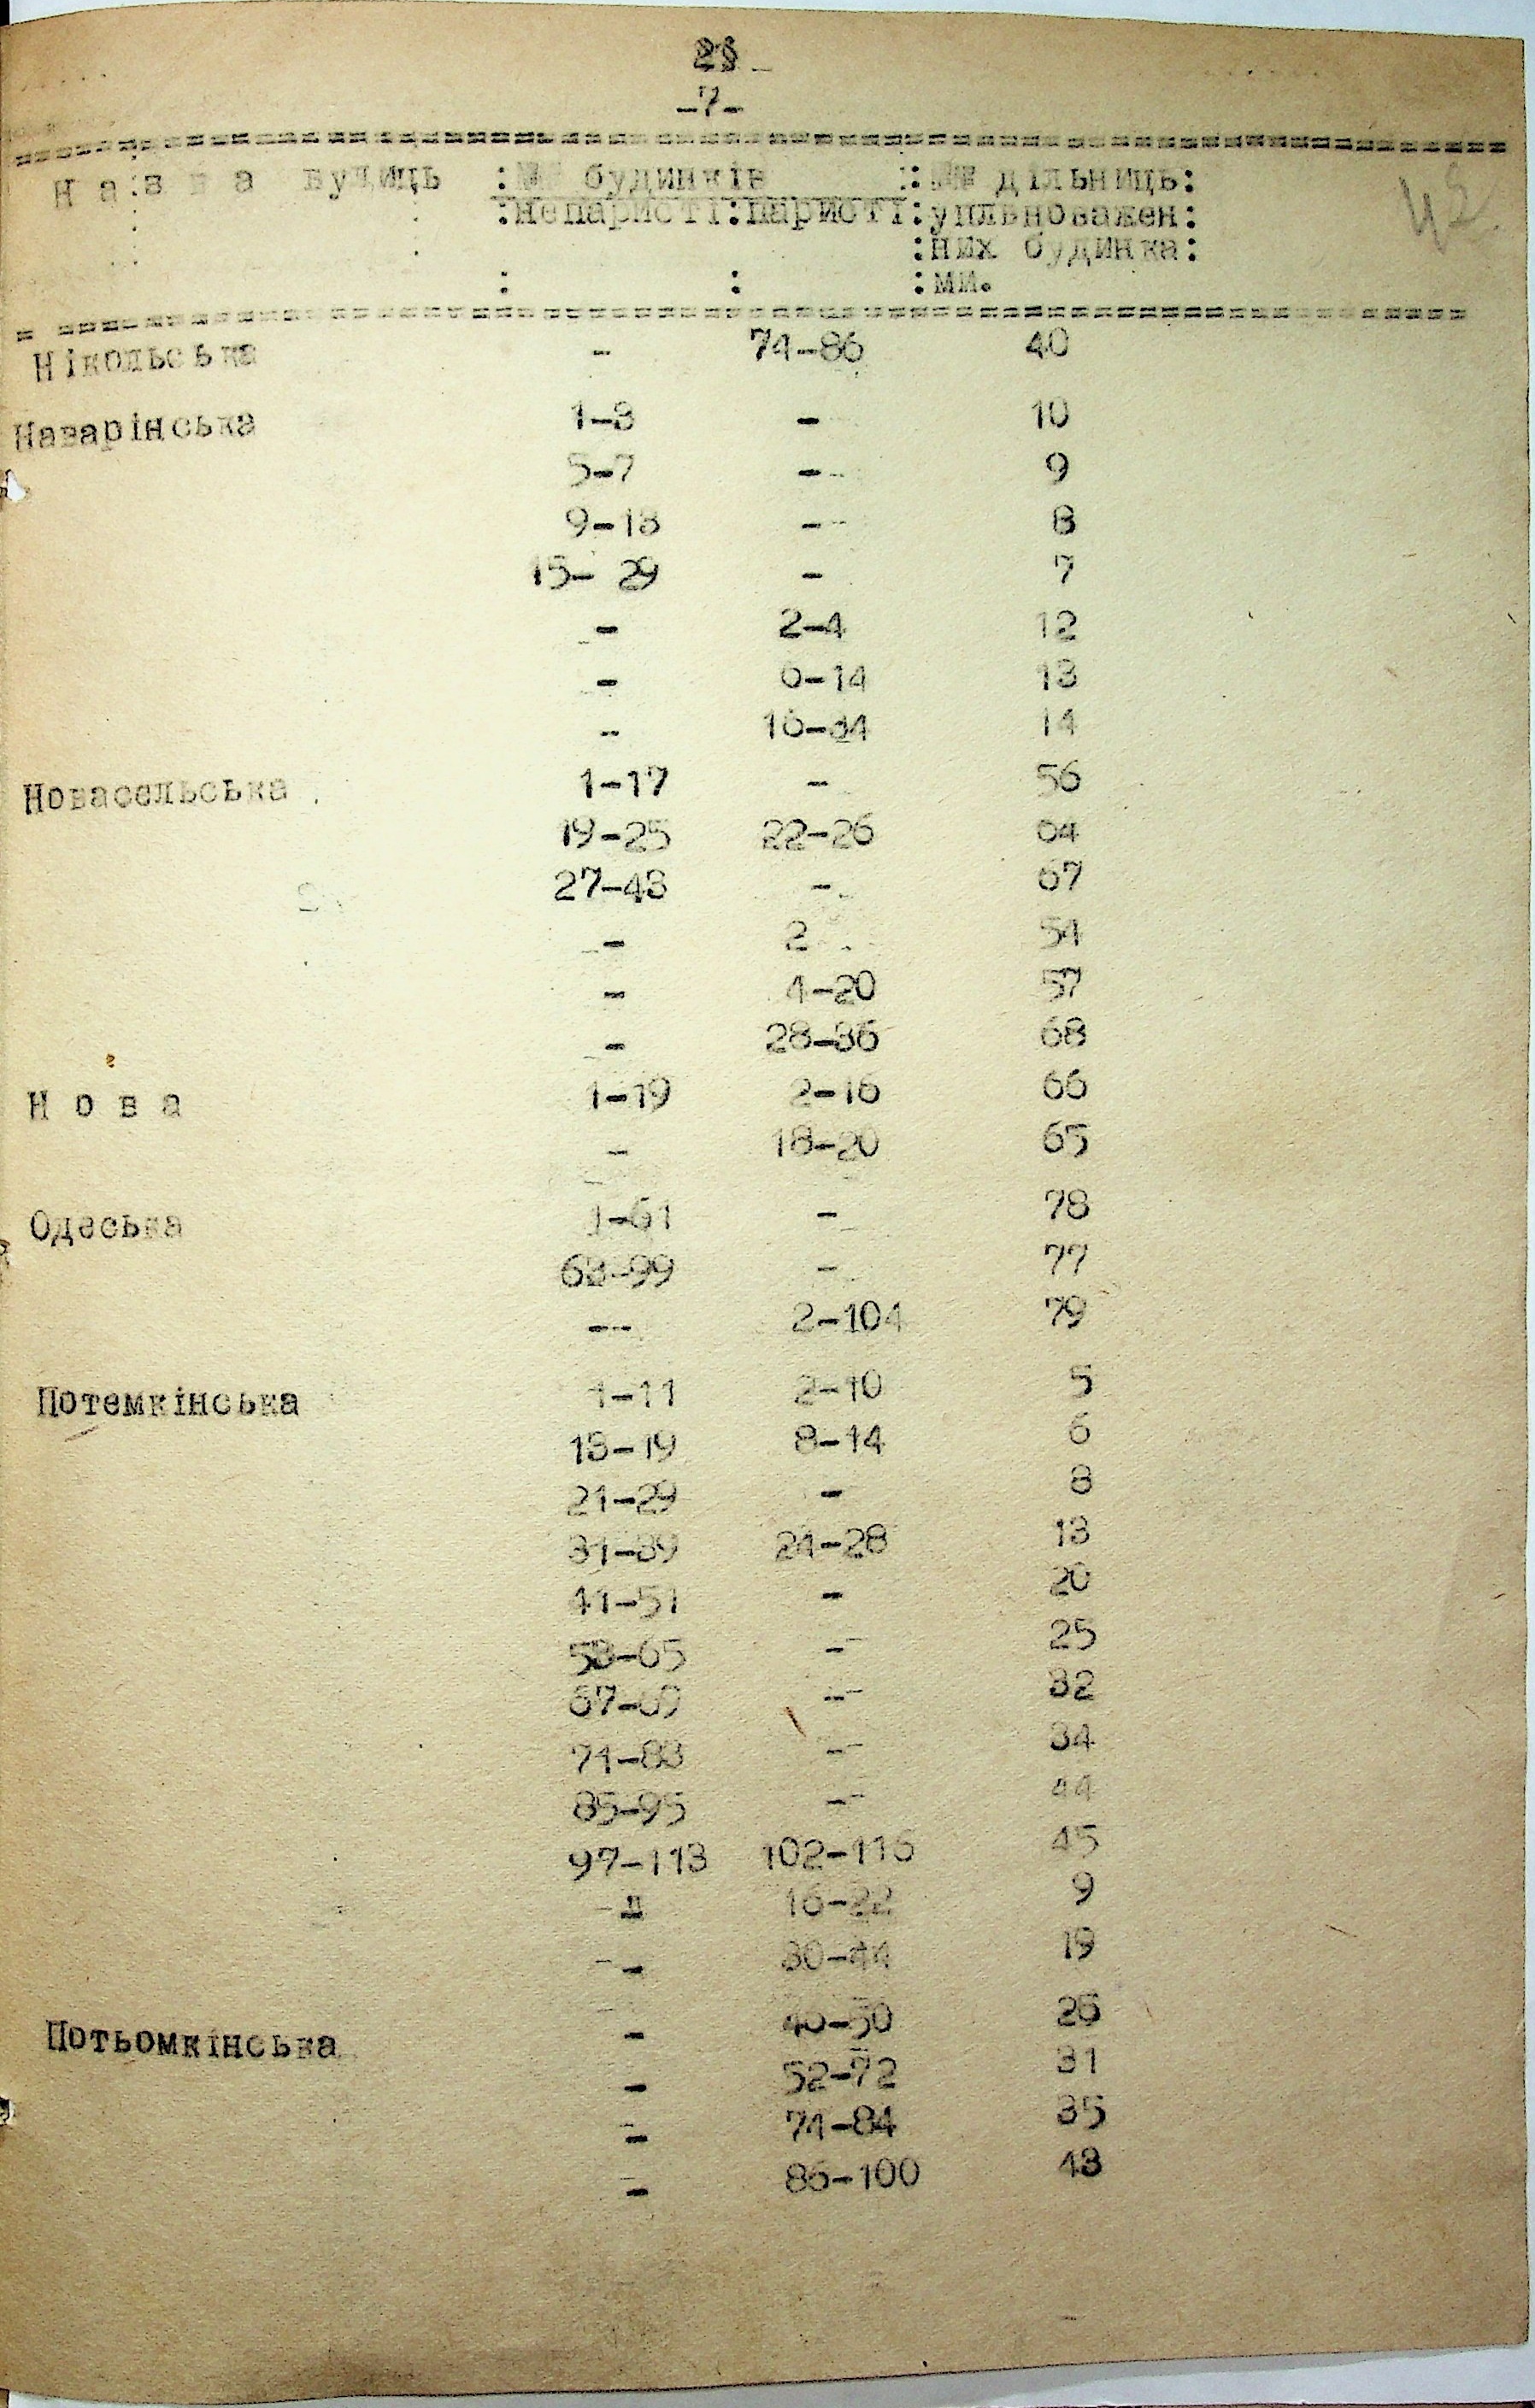 28
-7-
Назва вулиць :№№ будинків :№№ дільниць:
:непаристі:паристі:упльноважен:
:них будинка:
: : :ми.
Нікольська - 74-86 40
Наварінська 1-3 - 10
5-7 - 9
9-13 - 8
15- 29 - 7
- 2-4 12
- 6-14 13
- 16-34 14
Новасельська 1-17 - 56
19-25 22-26 64
27-43 - 67
- 2 54
- 4-20 57
- 28-36 68
Н о в а 1-19 2-16 66
- 18-20 65
Одеська 1-61 - 78
63-99 - 77
-- 2-104 79
Потемкінська 1-11 2-10 5
13-19 8-14 6
21-29 - 8
31-39 24-28 13
41-51 - 20
53-65 - 25
67-69 - 32
71-83 - 34
85-95 - 44
97-113 102-116 45
- 16-22 9
- 30-44 19
Потьомкінська - 46-50 26
- 52-72 31
- 74-84 35
- 86-100 43